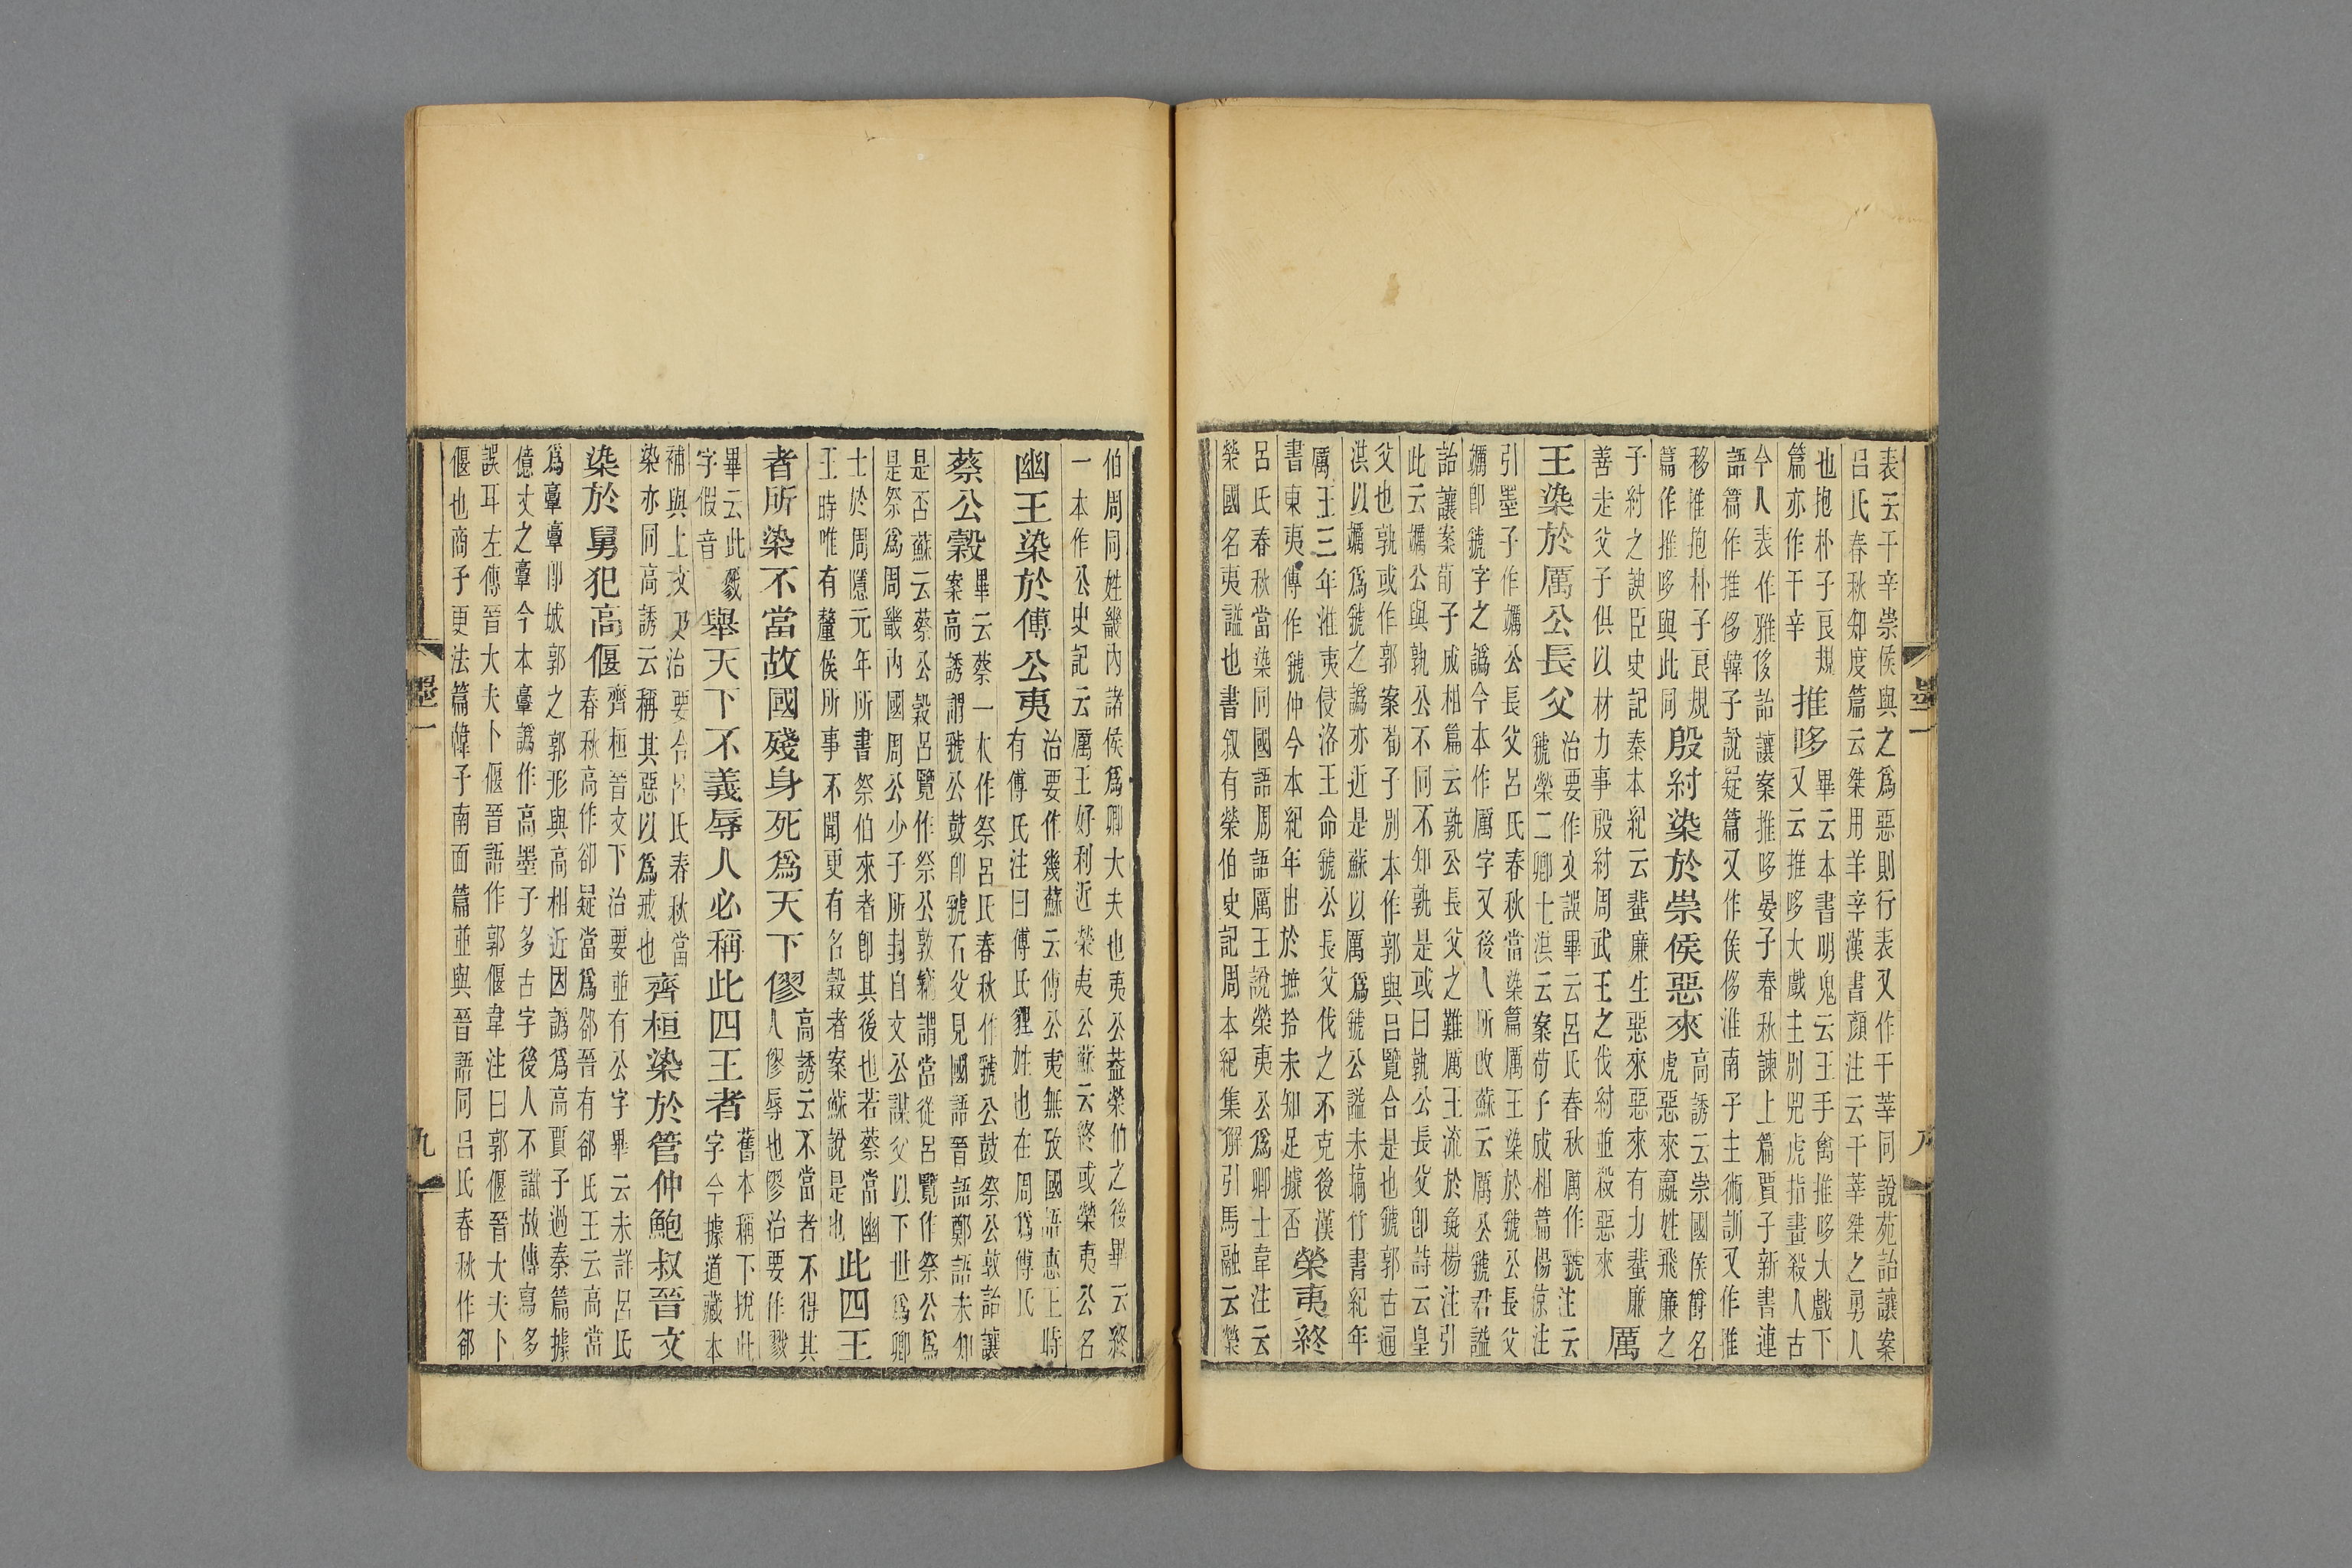 表云干辛崇侯與之爲惡則行表又作干莘同說苑詒讓案
呂氏春秋知度篇云桀用羊辛漢書顏注云干莘桀之勇人
也抱朴子良規
篇亦作干辛
推哆
畢云本書明鬼云王手禽推哆大戲下
又云推哆大戲主別兕虎指畫殺人古
今人表作雅侈詒讓案推哆晏子春秋諫上篇賈子新書連
語篇作推侈韓子說疑篇又作侯侈淮南子主術訓又作推
移推抱朴子良規
篇作推哆與此同
殷紂染於崇侯惡來
高誘云崇國侯爵名
虎惡來嬴姓飛廉之
子紂之諛臣史記秦本紀云蜚廉生惡來惡來有力蜚廉
善走父子俱以材力事殷紂周武王之伐紂並殺惡來
厲
王染於厲公長父
治要作文誤畢云呂氏春秋厲作虢注云
虢榮二卿士淇云案荀子成相篇楊倞注
引墨子作蠣公長父呂氏春秋當染篇厲王染於虢公長父
蠣卽虢字之譌今本作厲字又後人所改蘇云厲公虢君謚
詒讓案荀子成相篇云孰公長父之難厲王流於彘楊注引
此云蠣公與孰公不同不知孰是或曰孰公長父卽詩云皇
父也孰或作郭案荀子別本作郭與呂覽合是也虢郭古通
淇以蠣爲虢之譌亦近是蘇以厲爲虢公謚未塙竹書紀年
厲王三年淮夷侵洛王命虢公長父伐之不克後漢
書東夷傳作虢仲今本紀年出於摭拾未知足據否
榮夷終
呂氏春秋當染同國語周語厲王說榮夷公爲卿士韋注云
榮國名夷謚也書敘有榮伯史記周本紀集解引馬融云榮
伯周同姓畿內諸侯爲卿大夫也夷公蓋榮伯之後畢云終
一本作公史記云厲王好利近榮夷公蘇云終或榮夷公名
幽王染於傅公夷
治要作幾蘇云傅公夷無攷國語惠王時
有傅氏注曰傅氏貍姓也在周爲傅氏
蔡公穀
畢云蔡一本作祭呂氏春秋作虢公鼓祭公敦詒讓
案高誘謂虢公鼓卽虢石父見國語晉語鄭語未知
是否蘇云蔡公穀呂覽作祭公敦竊謂當從呂覽作祭公爲
是祭爲周畿內國周公少子所封自文公謀父以下世爲卿
士於周隱元年所書祭伯來者卽其後也若蔡當幽
王時唯有釐侯所事不聞更有名穀者案蘇說是也
此四王
者所染不當故國殘身死爲天下僇
高誘云不當者不得其
人僇辱也僇治要作戮
畢云此戮
字假音
舉天下不義辱人必稱此四王者
舊本稱下挩此
字今據道藏本
補與上文及治要合呂氏春秋當
染亦同高誘云稱其惡以爲戒也
齊桓染於管仲鮑叔晉文
染於舅犯高偃
齊桓晉文下治要並有公字畢云未詳呂氏
春秋高作郤疑當爲郤晉有郤氏王云高當
爲𩫏𩫏卽城郭之郭形與高相近因譌爲高賈子過秦篇據
億丈之𩫏今本𩫏譌作高墨子多古字後人不識故傳寫多
誤耳左傳晉大夫卜偃晉語作郭偃韋注曰郭偃晉大夫卜
偃也商子更法篇韓子南面篇並與晉語同呂氏春秋作郤
墨一
九